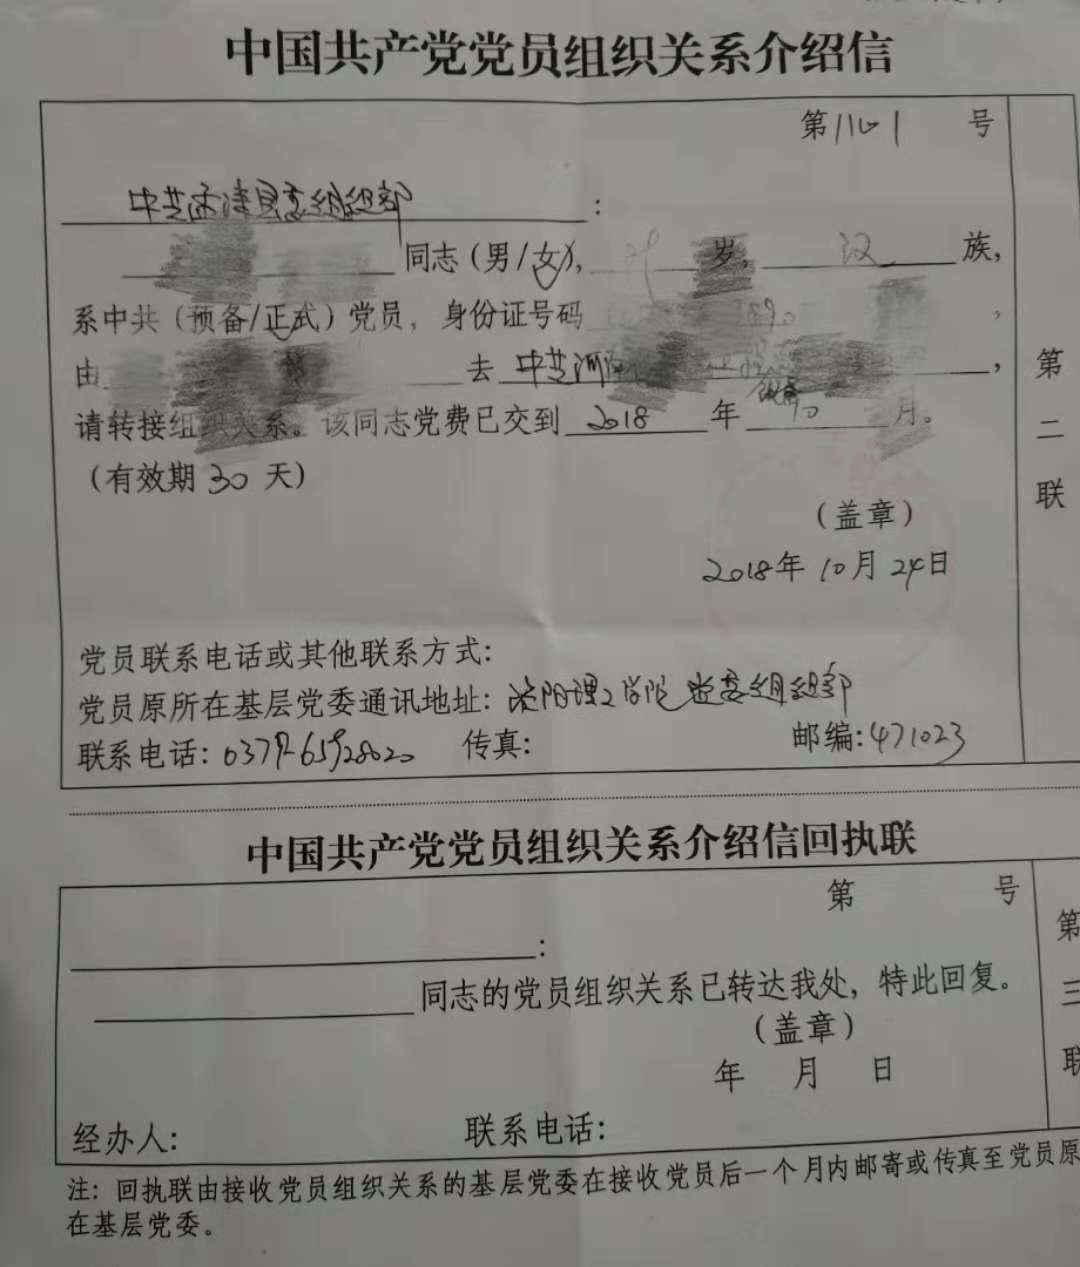 中国共产党党员组织关系介绍信
第 号
中共孟津县委组织部：
同志（男/女），岁，汉族，
系中共（预备/正式）党员，身份证号码，
由 去 中共，
请转接组织关系。该同志党费已交到 2018 年 10 月。
（有效期 30 天）
（盖章）
2018年 10月 24日
党员联系电话或其他联系方式：
党员原所在基层党委通讯地址：洛阳理工学院党委组织部
联系电话： 传真： 邮编：471023
第二联
中国共产党党员组织关系介绍信回执联
第 号
：
同志的党员组织关系已转达我处，特此回复。
（盖章）
年 月 日
经办人： 联系电话：
第三联
注：回执联由接收党员组织关系的基层党委在接收党员后一个月内邮寄或传真至党员原
在基层党委。